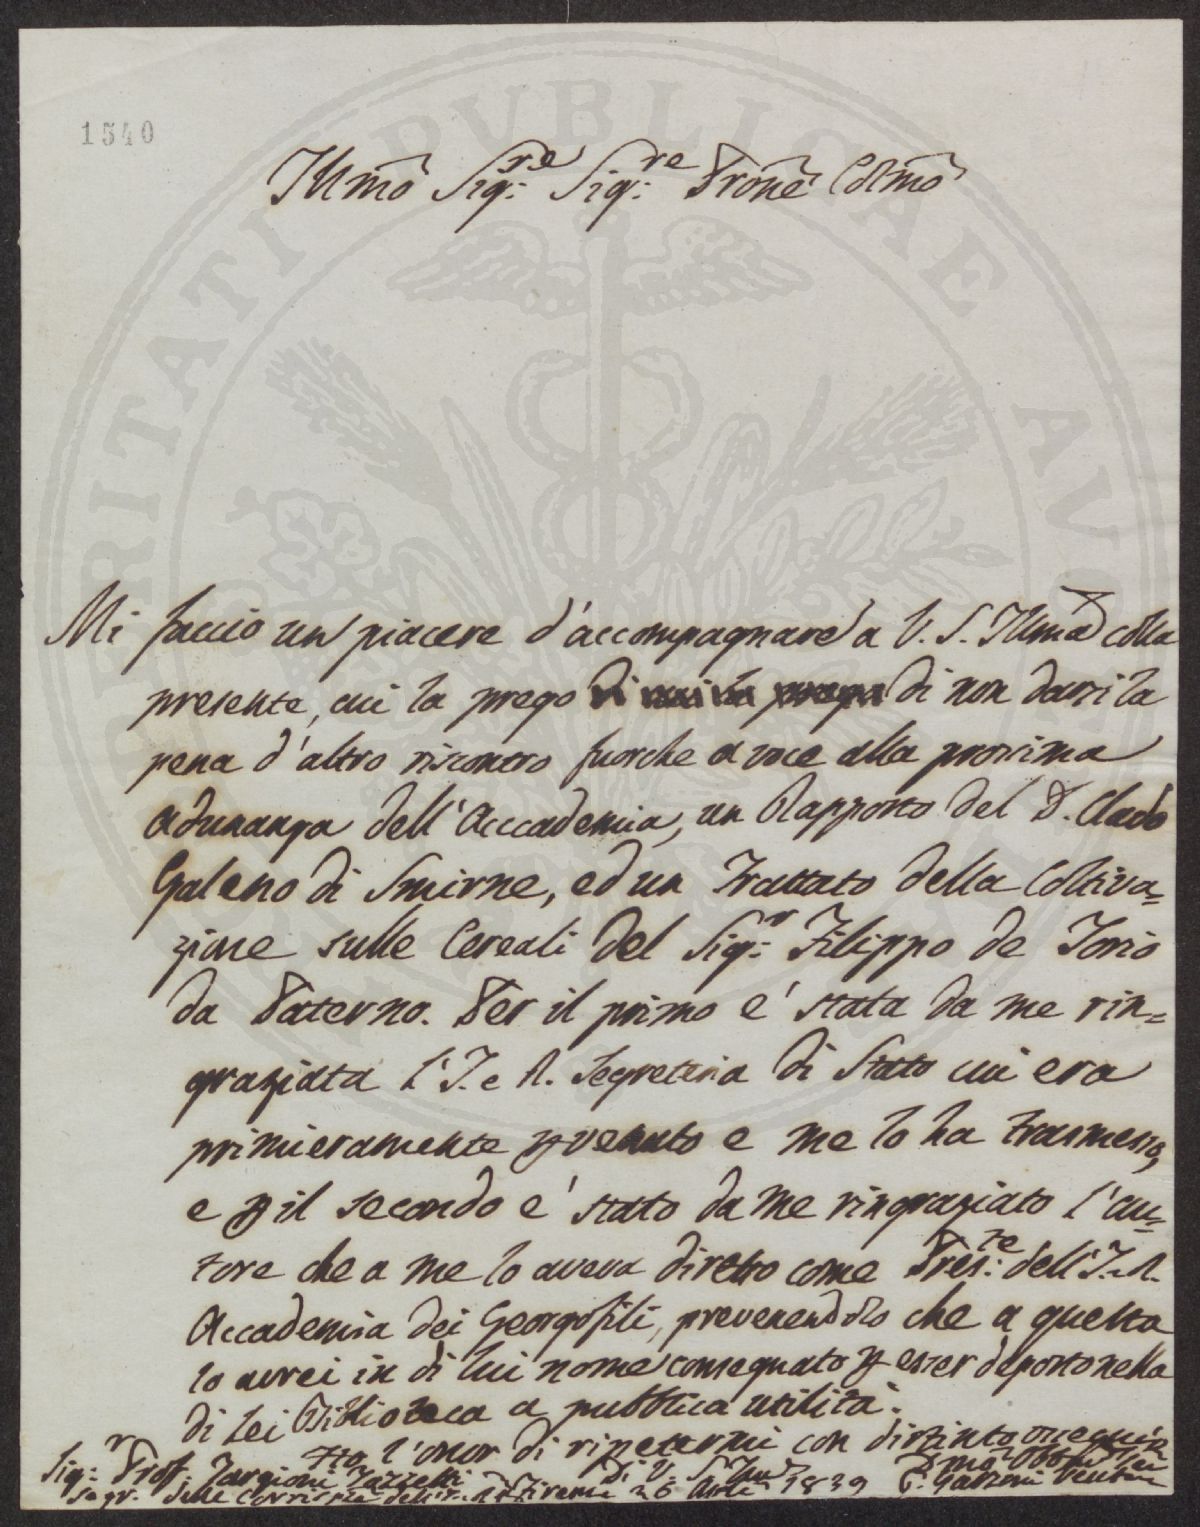 1540
Illmo Sigre: Sigre: Prone Colmo
Mi faccio un piacere d'accompagnare a V. S. Illma colla
presente, cui la prego di non darsi la
pena d'altro riscontro fuorche a voce alla prossima
adunanza dell'Acccademia, un Rapporto del D. Clado
Galeno di Smirne, ed un Trattato della Coltiva=
zione sulle Cereali del Sigr: Filippo de Jorio
da Paterno. Per il primo e' stata da me rin=
graziata l'I. e R. Segreteria di Stato cui era
primieramente pvenuto e me lo ha trasmesso,
e p il secondo e' stato da me ringraziato l'au=
tore che a me lo aveva diretto come Preste: dell'I. R.
Accademia dei Georgofili, prevenendolo che a questa
lo avrei in di lui nome consegnato p esser deposto nella
di Lei Biblioteca a pubblica utilità.
l'onor di ripetermi con distinto ossequio
Sigr: Prof. Targioni Tozzetti Di V. S. Illma
Segr. delle Corrispze dell' Firenze 26 1839 Venturi
PVBLICAE